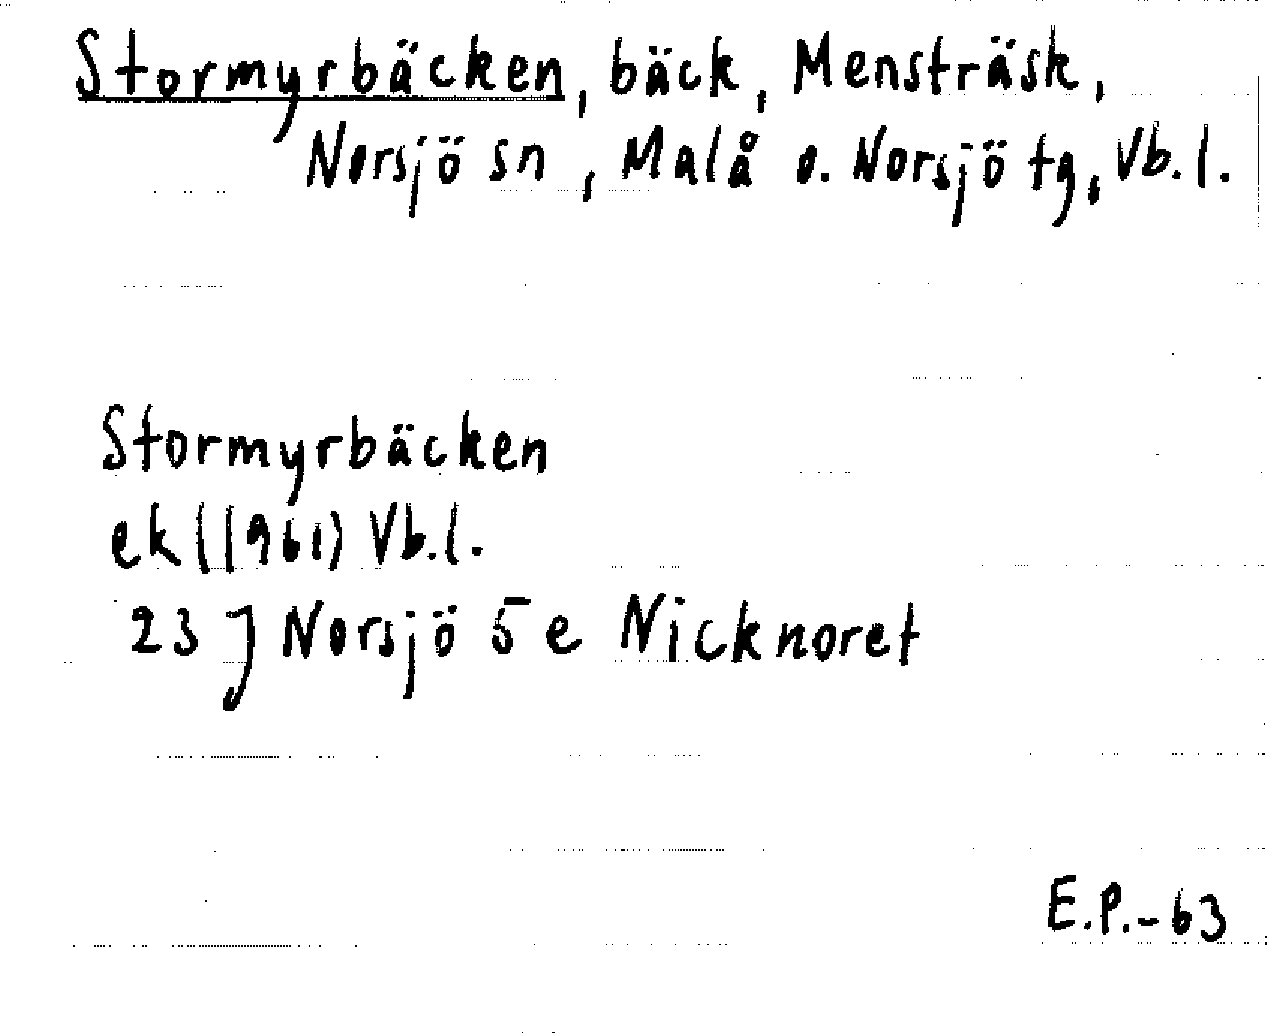 Stormyrbäcken, bäck, Mensträsk,
Norsjö sn, Malå o. Norsjö tg, Vb.l.
Stormyrbäcken
ek (1961) Vb.l.
23 J Norsjö 5 e Nicknoret
E.P.-63